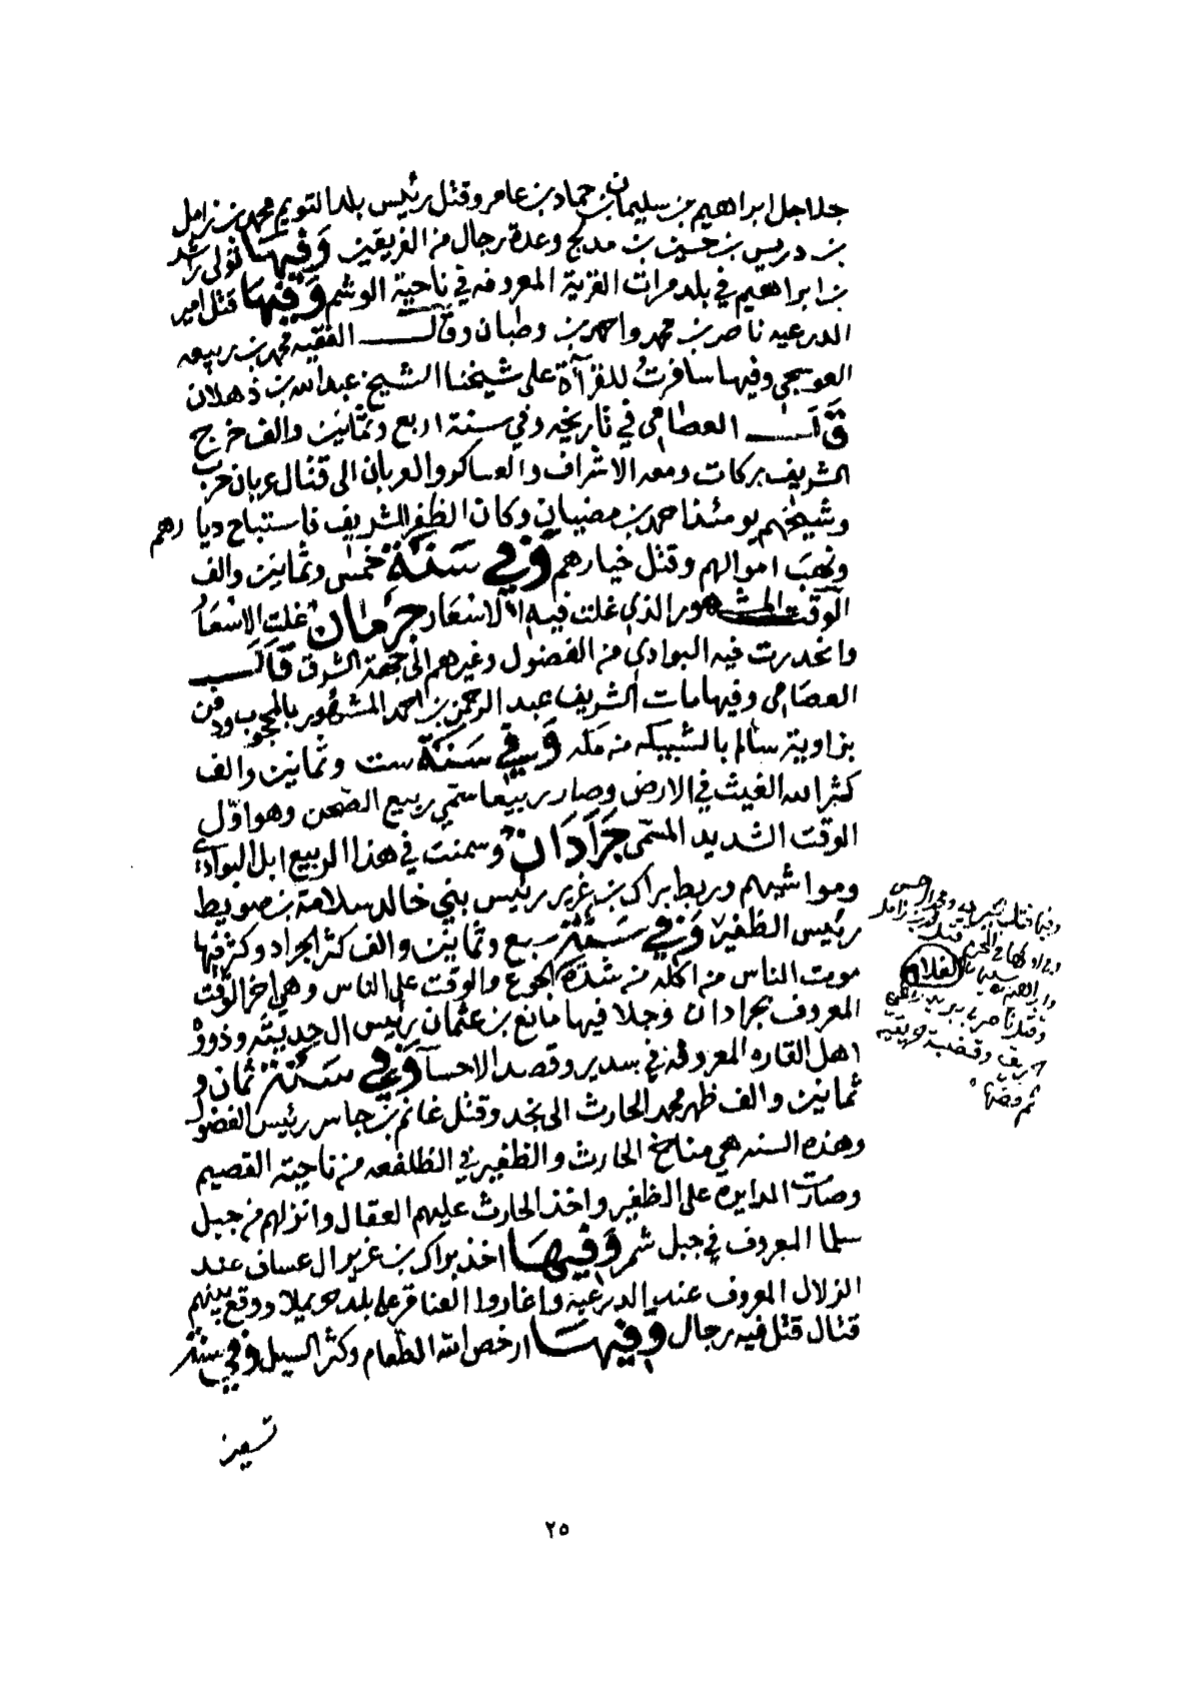 جلاجل ابراهيم بن سليمان بن حماد بن عامر وقتل رئيس بلد التويم محمد بن زامل
بن دريس بن حسين بن مدلج وعدة رجال من الفريقين وفيها تولى راشد
بن ابراهيم في بلد مرات القرية المعروفه في ناحية الوشم وفيها قتل امير
الدرعيه ناصر بن محمد واحمد بن وطبان وقال الفقيه محمد بن ربيعه
العوسجي وفيها سافرت للقرآة على شيخنا الشيخ عبدالله بن ذهلان
قال العصامي في تاريخه وفي سنة اربع وثمانين والف خرج
الشريف بركات ومعه الاشراف والعساكر والعربان الى قتال عربان حرب
وشيخهم يومئذ احمد بن مضيان وكان الظفر للشريف فاستباح ديارهم
ونهب اموالهم وقتل خيارهم وفي سنة خمس وثمانين والف
الوقت المشهور الذي غلت فيه الاسعار جرمان غلت الاسعار
وانحدرت فيه البوادي من الفضول وغيرهم الى جهة الشرق قال
العصامي وفيها مات الشريف عبد الرحمن بن احمد المشهور بالمحجوب ودفن
بزاوية سالم بالشبيكه من مكه وفي سنة ست وثمانين والف
كثر الله الغيث في الارض وصار ربيعا سمي ربيع الصحن وهو اول
الوقت الشديد المسمى جرادان وسمنت في هذا الربيع ابل البوادي
ومواشيهم وربط براك بن غرير رئيس بني خالد سلامة بن صويط
رئيس الظفير وفي سنة سبع وثمانين والف كثر الجراد وكثر فيها
موت الناس من اكله من شدة الجوع والوقت على الناس وهي اخر الوقت
المعروف بجرادان وجلا فيها مانع بن عثمان رئيس ال حديثه وذووه
اهل القاره المعروفه في سدير وقصد الاحسآ وفي سنة ثمان و
ثمانين والف ظهر محمد الحارث الى نجد وقتل غانم بن جاسر رئيس الفضول
وهذه السنه هي مناخ الحارث والظفير في الظلفعه من ناحية القصيم
وصارت الدايره على الظفير واخذ الحارث عليهم العقال وانزلهم من جبل
سلما المعروف في جبل شمر وفيها اخذ براك بن غرير ال عساف عند
الزلال المعروف عند الدرعية واغاروا العناقر على بلد حريملا ووقع بينهم
قتال قتل فيه رجال وفيها ارخص الله الطعام وكثر السيل وفي سنة
تسعين
وفيها قتل
زامل
ابراهيم بن سليمان
الغلام
٢٥